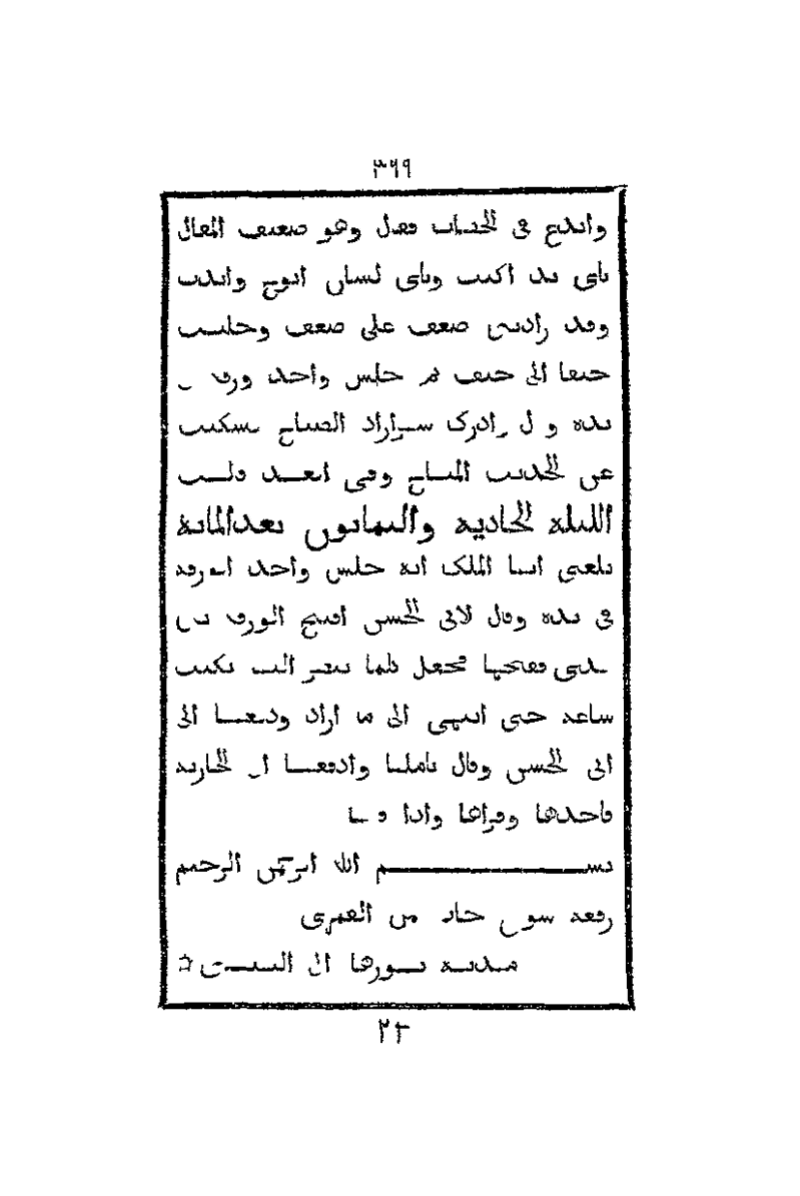 ٣٦٩
وابدع في فقال وهو ضعيف المقال
باي يد اكتب وباي لسان انوح واندب
وقد زادني ضعف على ضعف وجلبت
حتفا الى حتف ثم جلس واخذ ورقة
بيده و ادرك شهرازاد الصباح فسكتت
عن الحديث المباح وفي الغد قالت
الليلة الحادية والثمانون بعدالماية
بلغني ايها الملك انه جلس واخذ الورقة
في يده وقال لابي الحسن افتح الورق بين
يدي ففتحها فجعل كلما يكتب
ساعة حتى انتهى الى ما اراد ودفعها الى
ابي الحسن وقال تاملها وادفعها الى الجارية
فاخذها وقراها واذا فيها
بسم الله الرحمن الرحيم
رقعة من القمرى
نورها الى
٢٣